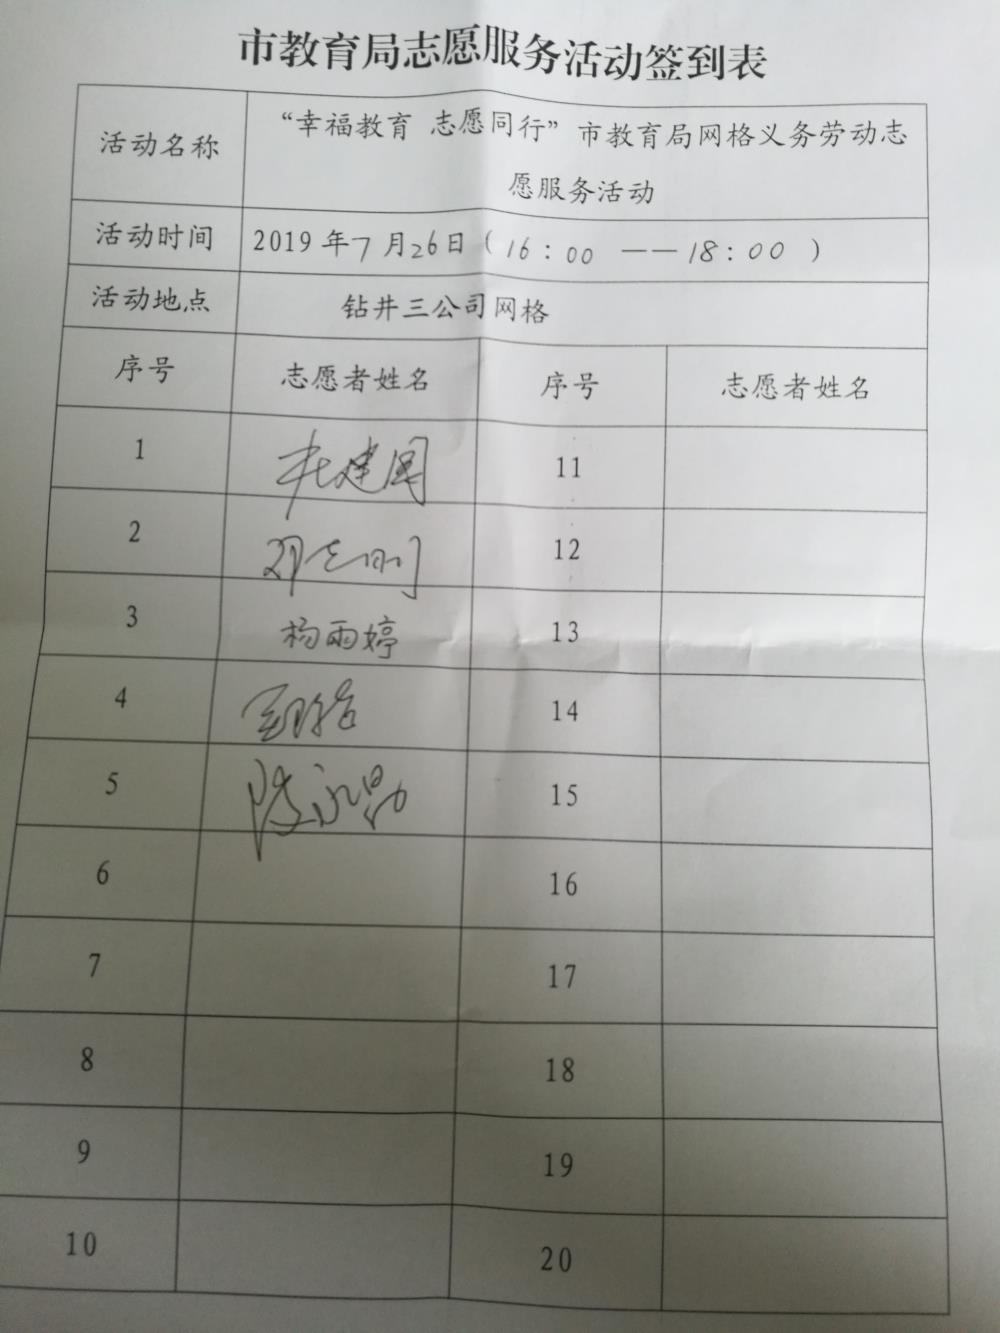 市教育局志愿服务活动签到表
活动名称
“幸福教育 志愿同行”市教育局网格义务劳动志
愿服务活动
活动时间 2019年7月26日(16:00 ——18:00)
活动地点 钻井三公司网格
序号 志愿者姓名 序号 志愿者姓名
1 杜建国 11
2 邓志刚 12
3 杨雨婷 13
4 14
5 陈永勋 15
6 16
7 17
8 18
9 19
10 20